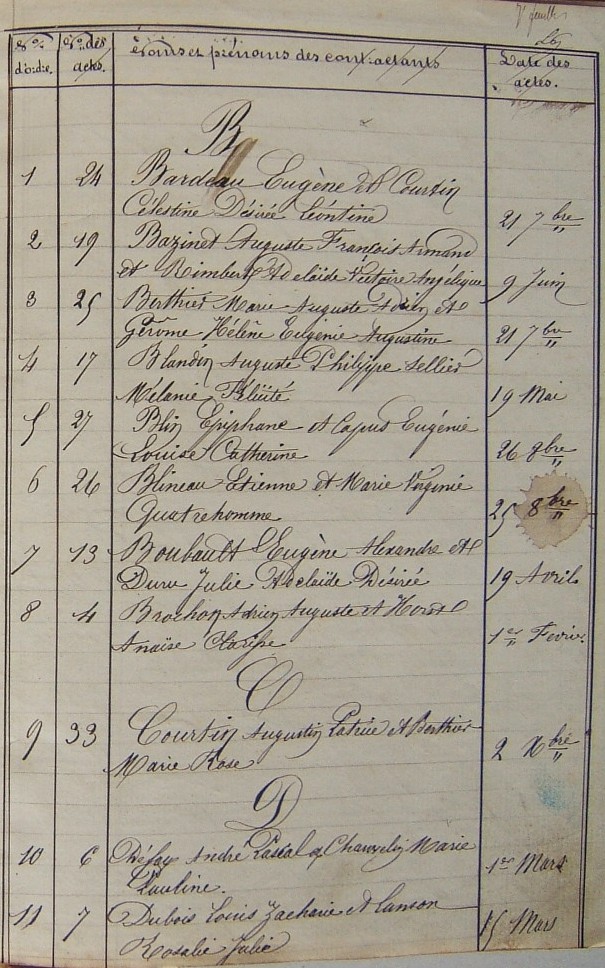 7e feuillet
Nos d'ordre. Nos des actes. Noms et prénoms des contractants Date des actes.
B
1 24 Bardeau Eugène et Courtin
Célestine Désirée Léontine 21 7bre
2 19 Bazinet Auguste François Armand
et Rimbert Adelaïde Victoire Angélique 9 Juin
3 25 Berthier Marie Auguste Adrien et
Gérôme Hélène Eugénie Augustine 21 7bre
4 17 Blandin Auguste Philippe Sellier
Mélanie Félicité 19 Mai
5 27 Blin Epiphane et Capus Eugénie
Louise Catherine 26 8bre
6 26 Blineau Etienne et Marie Virginie
Quatrehomme 25 8bre
7 13 Boubault Eugène Alexandre et
Duru Julie Adelaïde Désirée 19 Avril
8 4 Brochon Adrien Auguste et
Anaïse Clarisse 1er Fevrier.
C
9 33 Courtin Augustin Patrice et Berthier
Marie Rose 2 Xbre
D
10 6 André Pascal et Marie
Pauline. 1er Mars
11 7 Dubois Louis Zacharie et Lanson
Rosalie Julie 15 Mars